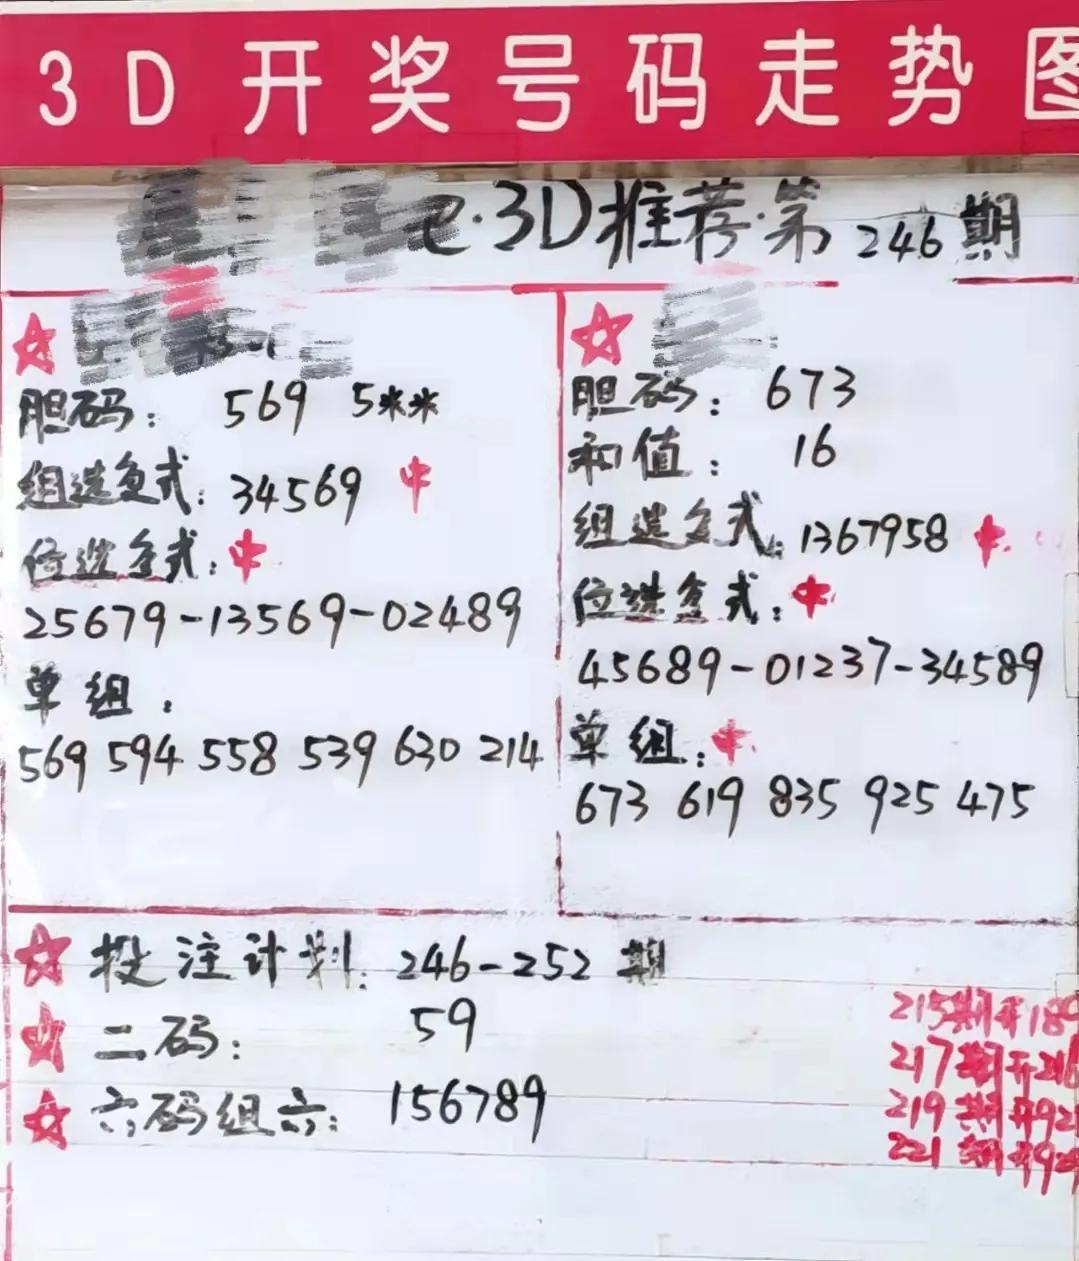 3D开奖号码走势图
e·3D推荐·第246期
胆码: 569 5**
组选复式: 34569 中
位选复式: 中
25679-13569-02489
单组:
569 594 558 539 630 214
胆码: 673
和值: 16
组选复式: 1367958 中
位选复式: 中
45689-01237-34589
单组: 中
673 619 835 925 475
投注计划: 246-252期
二码: 59
六码组六: 156789
215期开189
217期开216
219期开92
221期开92